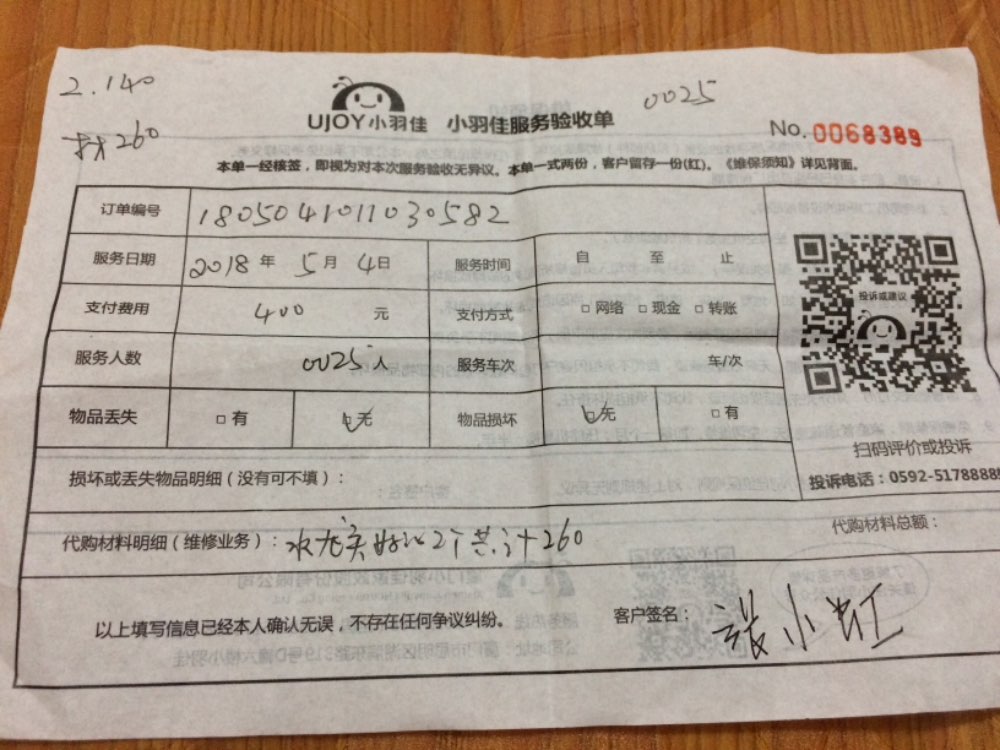 2.140
材260
0025
UJOY小羽佳 小羽佳服务验收单
No. 0068389
本单一经核签，即视为对本次服务验收无异议。本单一式两份，客户留存一份(红)。《维保须知》详见背面。
订单编号 1805041011030582
服务日期 2018 年 5 月 4 日 服务时间 自 至 止
支付费用 400 元 支付方式 □ 网络 □ 现金 □ 转账
投诉或建议
服务人数 0025 人 服务车次 车/次
物品丢失 □ 有 ☑ 无 物品损坏 ☑ 无 □ 有
扫码评价或投诉
损坏或丢失物品明细（没有可不填）：
投诉电话：0592-5178888
代购材料明细（维修业务）： 水龙头 2个共计260
代购材料总额：
以上填写信息已经本人确认无误，不存在任何争议纠纷。
客户签名： 张小红